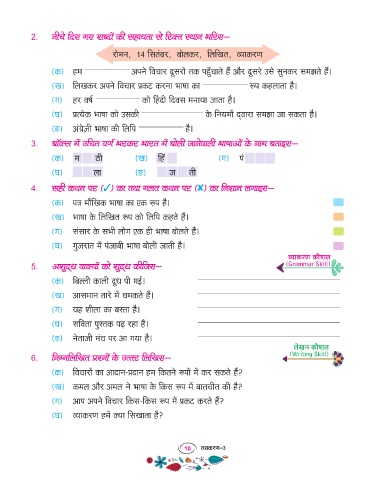 2. नीचे दिए गए शब्दों की सहायता से रिक्त स्थान भरिए–
रोमन, 14 सितंबर, बोलकर, लिखित, व्याकरण
(क) हम अपने विचार दूसरों तक पहुँचाते हैं और दूसरे उसे सुनकर समझते हैं।
(ख) लिखकर अपने विचार प्रकट करना भाषा का रूप कहलाता है।
(ग) हर वर्ष को हिंदी दिवस मनाया जाता है।
(घ) प्रत्येक भाषा को उसकी के नियमों द्वारा समझा जा सकता है।
(ङ) अंग्रेज़ी भाषा की लिपि है।
3. बॉक्स में उचित वर्ण भरकर भारत में बोली जानेवाली भाषाओं के नाम बताइए–
(क) म ठी (ख) हिं (ग) पं
(घ) ला (ङ) ज ती
4. सही कथन पर (✓) का तथा गलत कथन पर (✗) का निशान लगाइए–
(क) पत्र मौखिक भाषा का एक रूप है।
(ख) भाषा के लिखित रूप को लिपि कहते हैं।
(ग) संसार के सभी लोग एक ही भाषा बोलते हैं।
(घ) गुजरात में पंजाबी भाषा बोली जाती है।
व्याकरण कौशल
(Grammar Skill)
5. अशुद्ध वाक्यों को शुद्ध कीजिए–
(क) बिल्ली काली दूध पी गई।
(ख) आसमान तारे में चमकते हैं।
(ग) यह शीला का बस्ता है।
(घ) सविता पुस्तक पढ़ रहा है।
(ङ) नेताजी मंच पर आ गया है।
लेखन कौशल
(Writing Skill)
6. निम्नलिखित प्रश्नों के उत्तर लिखिए–
(क) विचारों का आदान-प्रदान हम कितने रूपों में कर सकते हैं?
(ख) कमल और अमल ने भाषा के किस रूप में बातचीत की है?
(ग) आप अपने विचार किस-किस रूप में प्रकट करते हैं?
(घ) व्याकरण हमें क्या सिखाता है?
10 व्याकरण-3